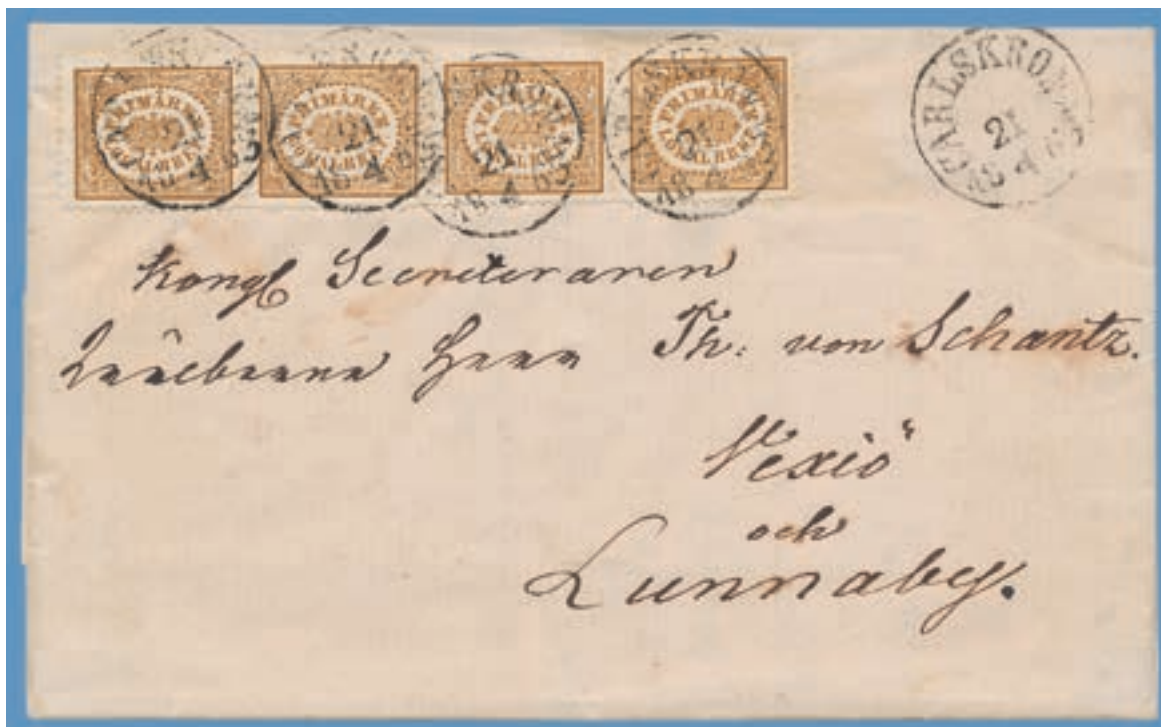 FRIMÄRKE
LOKALBREF
FRIMÄRKE
LOKALBREF
FRIMÄRKE
LOKALBREF
FRIMÄRKE
LOKALBREF
21
21
21
CARLSKRONA
21
18 4 63
Kongl Secreteraren
Herr Th: von Schantz.
Vexiö
och
Lunnaby.